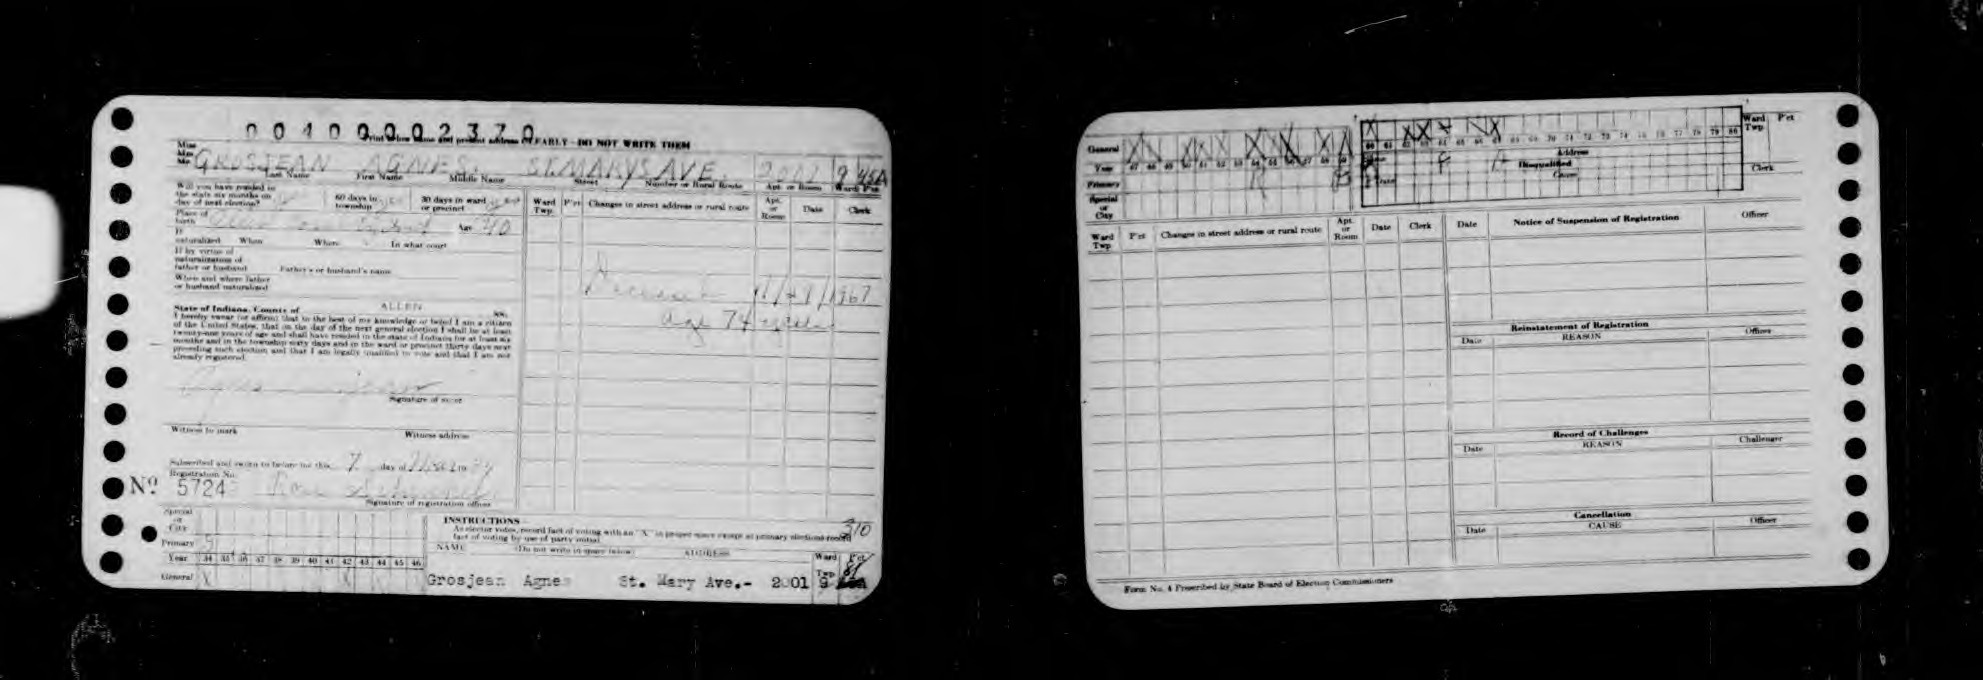 00400002370
Print below name and present address CLEARLY—DO NOT WRITE THEM
Miss
Mrs.
Mr. GROSJEAN AGNES. ST.MARYS AVE. 2001 9 45A
Last Name First Name Middle Name Street Number or Rural Route Apt. or Room Ward P'ct
Will you have resided in
the state six months on
day of next election?
60 days in
township
30 days in ward
or precinct
Place of
birth Age 40
If
naturalized When Where In what court
If by virtue of
naturalization of
father or husband Father's or husband's name
When and where father
or husband naturalized
State of Indiana, County of ALLEN ss:
I hereby swear (or affirm) that to the best of my knowledge or belief I am a citizen
of the United States, that on the day of the next general election I shall be at least
twenty-one years of age and shall have resided in the state of Indiana for at least six
months and in the township sixty days and in the ward or precinct thirty days next
preceding such election and that I am legally qualified to vote and that I am not
already registered.
Agnes
Signature of voter
Witness to mark Witness address
Subscribed and sworn to before me this 7 day of 19
Registration No.
No 5724 Rose
Signature of registration officer
Ward
Twp. P'ct Changes in street address or rural route Apt.
or
Room Date Clerk
Deceased 1967
age 74
Special
or
City
Primary
Year 34 35 36 37 38 39 40 41 42 43 44 45 46
General X X
INSTRUCTIONS
As elector votes, record fact of voting with an "X" in proper space except at primary elections record
fact of voting by use of party initial.
310
NAME (Do not write in space below) ADDRESS Ward
Twp P'ct
Grosjean Agnes St. Mary Ave.- 2001 9
General
Year 47 48 49 50 51 52 53 54 55 56 57 58 59
Primary
Special
or
City
60 61 62 63 64 65 66 67 68 69 70 71 72 73 74 75 76 77 78 79 80
Address
Disqualified
Cause
Date
Ward
Twp. P'ct
Clerk
Ward
Twp P'ct Changes in street address or rural route Apt.
or
Room Date Clerk
Date Notice of Suspension of Registration Officer
Reinstatement of Registration
Date REASON Officer
Record of Challenges
Date REASON Challenger
Cancellation
Date CAUSE Officer
Form No. 4 Prescribed by State Board of Election Commissioners